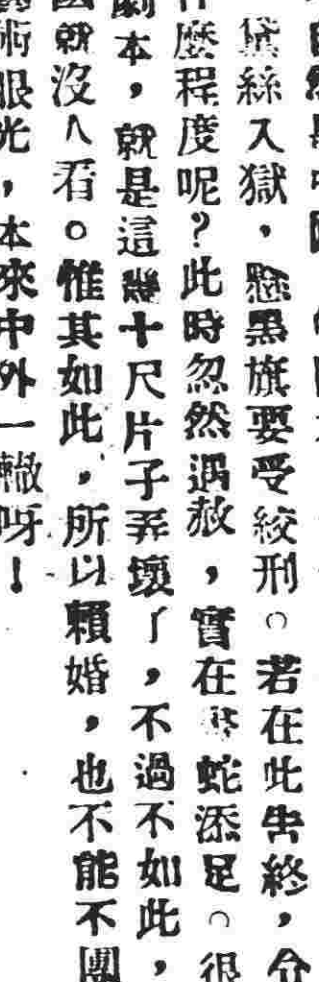 黛絲入獄，懸黑旗要受絞刑。若在此告終，介
麼程度呢？此時忽然遇赦，實在蛇添足。很
劇本，就是這幾十尺片子弄壞了，不過不如此，
就沒人看。惟其如此，所以賴婚，也不能不團
術眼光，本來中外一轍呀！